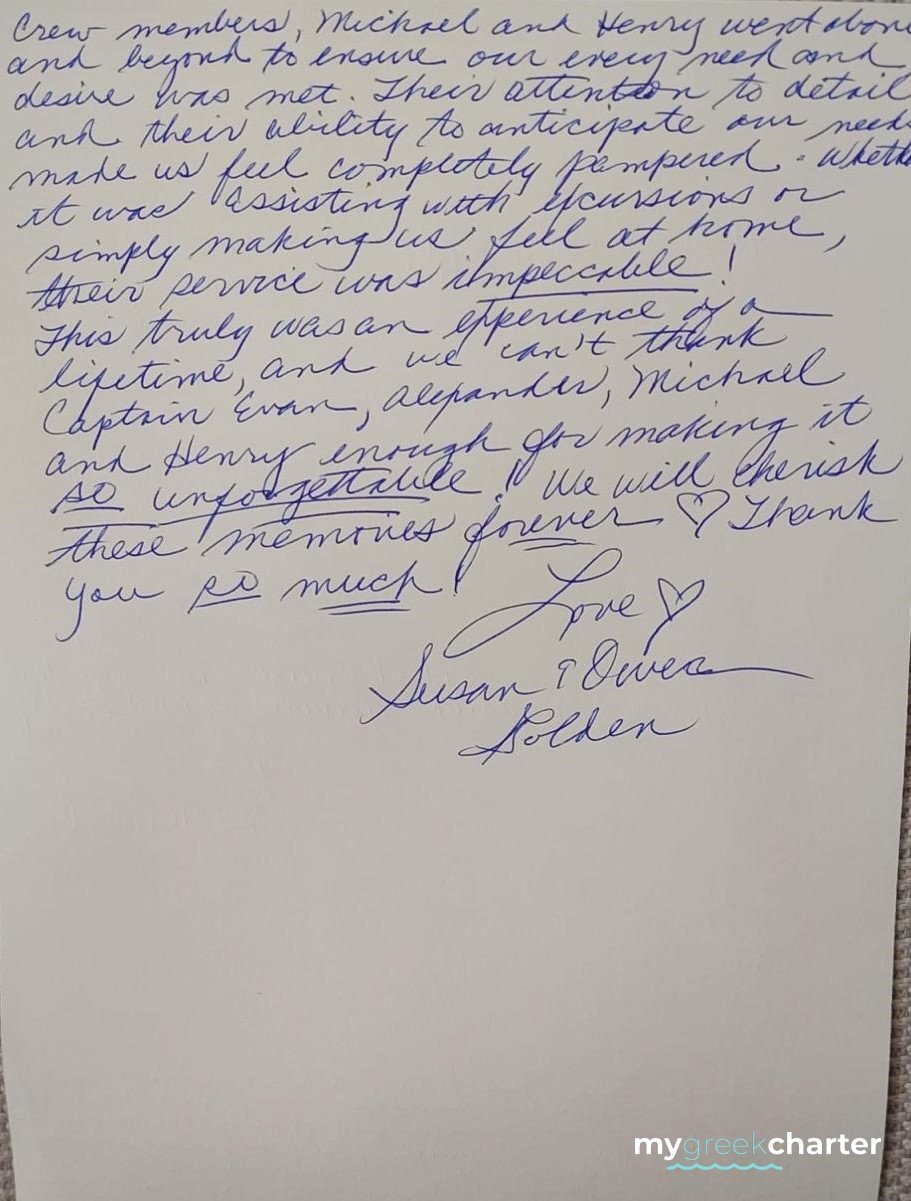 Crew members, Michael and Henry went above
and beyond to ensure our every need and
desire was met. Their attention to detail
and their ability to anticipate our need
made us feel completely pampered. Wheth
it was assisting with excursions or
simply making us feel at home,
their service was impeccable!
This truly was an experience of a
lifetime, and we can't thank
Captain Evan, Alexander, Michael
and Henry enough for making it
so unforgettable! We will cherish
these memories forever ♡ Thank
you so much!
Love ♡
Susan & Owen
Golden
mygreekcharter